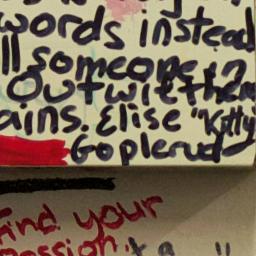 words instead
ll someone in
Outwit them
ains. Elise "Kitty"
Goplerud
Find your
passion.